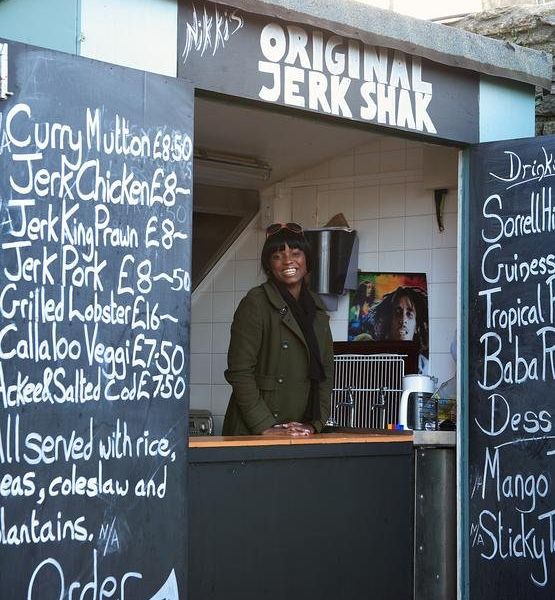 Nikki's
ORIGINAL
JERK SHAK
N/A Curry Mutton £8.50
Jerk Chicken £8~
N/A Jerk King Prawn £8~
Jerk Pork £8~50
Grilled Lobster £16~
Callaloo Veggi £7:50
Ackee & Salted Cod £7.50
All served with rice,
eas, coleslaw and
plantains. N/A
Order
Drink
Sorrell
Guiness
Tropical
Baba
Dess
N/A Mango
N/A Sticky T